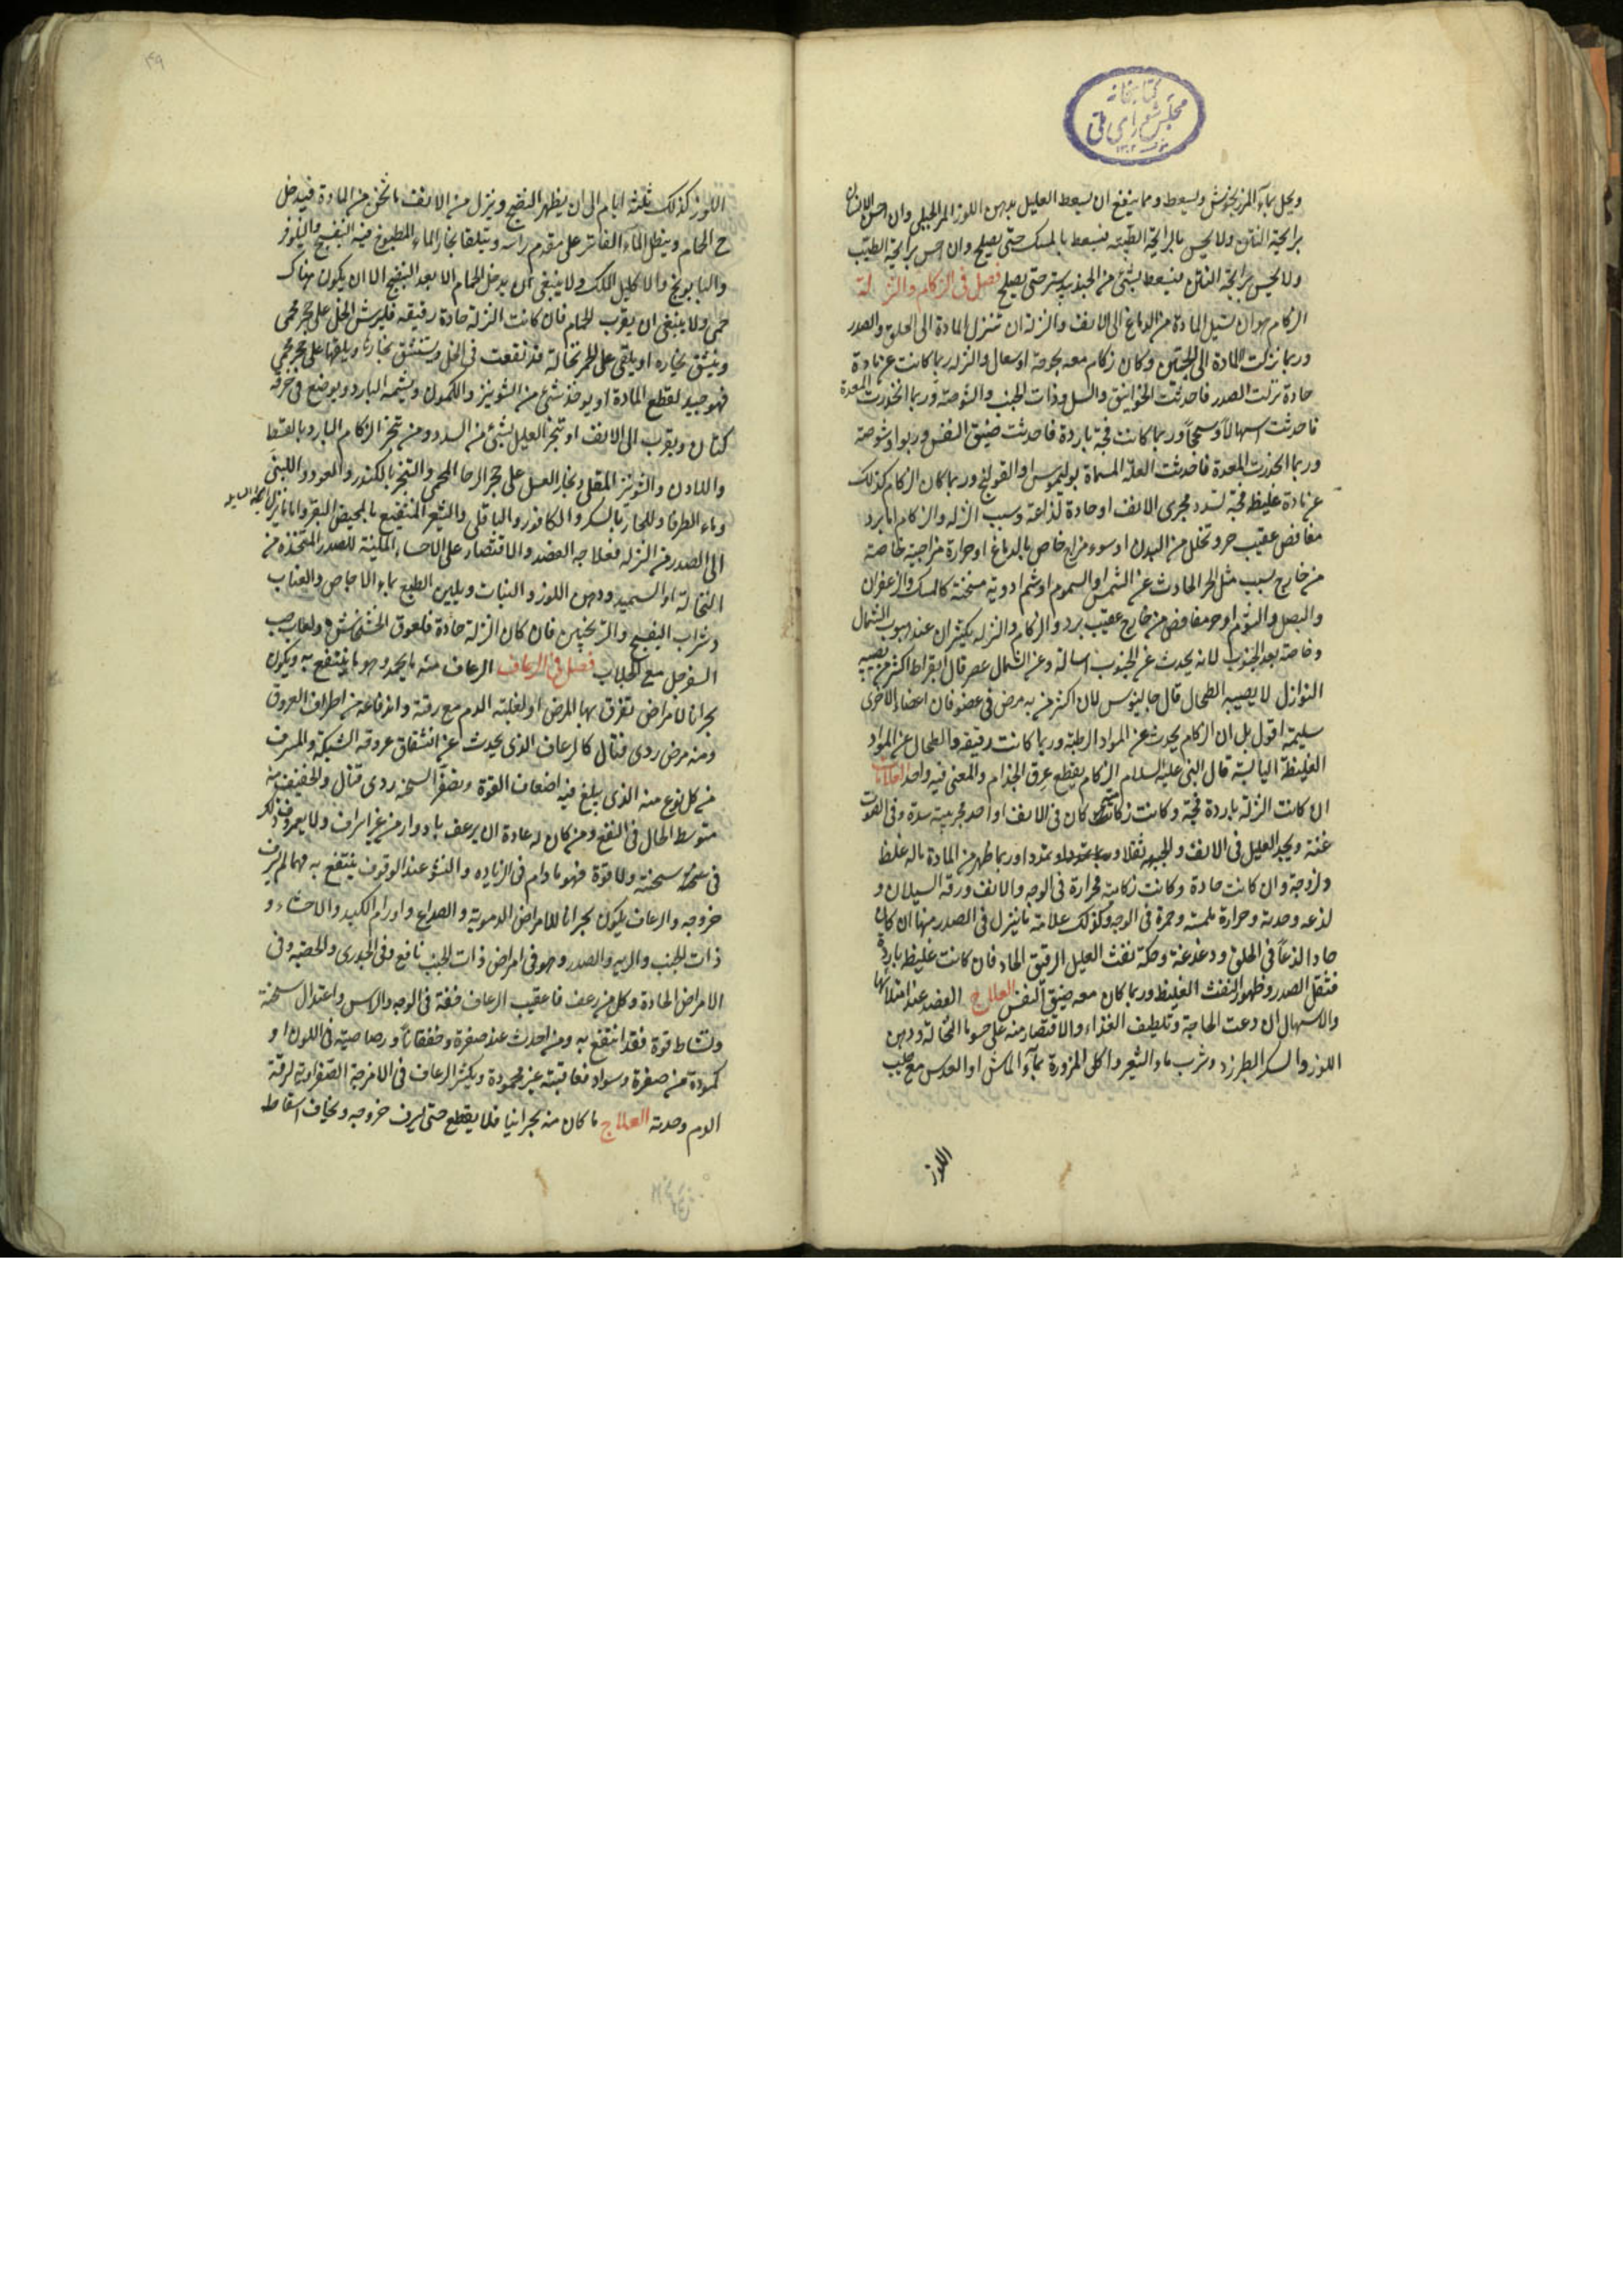 كتابخانه
مجلس شورای ملی
ويحل بماء المرزنجوش ويسعط ومما ينفع ان يسعط العليل بدهن اللوز المر الجبلي وان احس الانسان
برايحة النتن ولا يحس بالرايحة الطيبة فيسعط بالمسك حتى يصلح وان احس برايحة الطيب
ولا يحس برايحة النتن فيسعط بشئ من الجندبيدستر حتى يصلح فصل في الزكام والنزلة
الزكام هو ان تسيل المادة من الدماغ الى الانف والنزلة ان تنزل المادة الى الحلق والصدر
وربما نزلت المادة الى وكان زكام معه بحوحة او سعال والنزلة ربما كانت عن مادة
حادة نزلت الصدر فاحدثت الخوانيق والسل وذات الجنب والشوصة وربما انحدرت المعدة
فاحدثت اسهالا وسحجا وربما كانت فجة باردة فاحدثت ضيق النفس وربوا وشوصة
وربما انحدرت المعدة فاحدثت العلة المسماة بوليموس او القولنج وربما كان الزكام كذلك
عن مادة غليظة فجة تسدد مجرى الانف او حادة لذاعة وسبب النزلة والزكام اما برد
مغافص عقيب حر وتخلل من البدن او سوء مزاج خاص بالدماغ او حرارة مزاجية خاصة
من خارج بسبب مثل الحر الحادث عن الشمس او السموم او شم ادوية مسخنة كالمسك والزعفران
والبصل والثوم او حر مغافص من خارج عقيب برد والزكام والنزلة يكثران عند هبوب الشمال
وخاصة بعد الجنوب لانه يحدث عن الجنوب اسالة وعن الشمال عصر قال ابقراط اكثر من تصيبه
النوازل لا يصيبه الطحال قال جالينوس لان اكثر من به مرض في عضو فان اعضاءه الاخرى
سليمة اقول بل ان الزكام يحدث عن المواد الرطبة وربما كانت رقيقة والطحال عن المواد
الغليظة اليابسة قال النبي عليه السلام الزكام يقطع عرق الجذام والمعنى فيه واحد العلامات
ان كانت النزلة باردة فجة وكانت زكامية كان في الانف او احد مجرييه سدة وفي الصوت
غنة ويجد العليل في الانف والجبهة ثقلا وتمددا وربما ظهر من المادة ما له غلظ
ولزوجة وان كانت حادة وكانت زكامية فحرارة في الوجه والانف ورقة السيلان و
لذعه وحدته وحرارة ملمسه وحمرة في الوجه وكذلك علامة ما ينزل في الصدر منها ان كان
حادا لذعا في الحلق ودغدغة وحكة نفث العليل الرقيق الحاد فان كانت غليظة باردة
فثقل الصدر وظهور النفث الغليظ وربما كان معه ضيق النفس العلاج الفصد عند امتلائها
والاسهال ان دعت الحاجة وتلطيف الغذاء والاقتصار منه على حسو ماء النخالة ودهن
اللوز والسكر الطبرزد وشرب ماء الشعير واكل المزورة بماء الماش او العدس مع حليب
اللوز
۴۹
اللوز كذلك ثلثة ايام الى ان يظهر النضج وينزل من الانف ما ثخن من المادة فيدخل
ح الحمام وينطل الماء الفاتر على مقدم راسه ويتلقا بخار الماء المطبوخ فيه البنفسج والنيلوفر
والبابونج والاكليل الملك ولا ينبغي ان يدخل الحمام الا بعد النضج الا ان يكون هناك
حمى ولا ينبغي ان يقرب الحمام فان كانت النزلة حادة رقيقة فليرش الخل على حجر محمى
وينشق بخاره او يلقى على الجمر نخالة قد نقعت في الخل ويستنشق بخارها ويلقها على حجر محمى
فهو جيد لقطع المادة او يوخذ شئ من الشونيز والكمون ويشمه البارد ويوضع في خرقة
كتان ويقرب الى الانف او تبخر العليل بشئ من السندروس تبخر الزكام البارد بالقسط
واللادن والشونيز المقلي وبخار العسل على حجر الرحا المحمى والتبخر بالكندر والعود واللبنى
وماء الطرفا وللحار بالسكر والكافور والباقلى والشعير المنقيع بالمخيض البقر واما ما ينزل
الى الصدر من النزلة فعلاجه الفصد والاقتصار على الاحساء الملينة للصدر المتخذة من
النخالة او السميد ودهن اللوز والنبات ويلين الطبع بماء الاجاص والعناب
وشراب البنفسج والترنجبين فان كان النزلة حادة فلعوق الخشخاش ولعاب حب
السفرجل مع الجلاب فصل في الرعاف الرعاف منه ما يحمد وهو ما ينتفع به ويكون
بحرانا لامراض تفرق بها المرض او لغلبة الدم مع رقته واندفاعه من اطراف العروق
ومنه مرض ردي قتال كالرعاف الذي يحدث عن انشقاق عروقه الشبكة والمسرف
من كل نوع منه الذي يبلغ فيه اضعاف القوة وبصفر السحنة ردي قتال والخفيف منه
متوسط الحال في النفع ومن كان له عادة ان يرعف بادوار من غير اسراف ولا يعرف ذلك
في سحنته ولا قوة فهو ما دام في الزيادة والنشو عند الوقوف ينتفع به مهما لم يسرف
خروجه والرعاف يكون بحرانا للامراض الدموية والصداع واورام الكبد والاحشاء و
ذات الجنب والرية والصدر وهو في امراض ذات الجنب نافع وفي الجدري والحصبة وفي
الامراض الحادة وكل من رعف فاعقيب الرعاف خفة في الوجه والراس واعتدال سحنة
ونشاط قوة فقد انتفع به ومن احدث عنه صفرة وخفقانا ورصاصية في اللون او
كمودة من صفرة وسواد فعاقبته غير محمودة ويكثر الرعاف في الامزجة الصفراوية لرقة
الدم وحدته العلاج ما كان منه بحرانيا فلا يقطع حتى يسرف خروجه ويخاف اسقاط